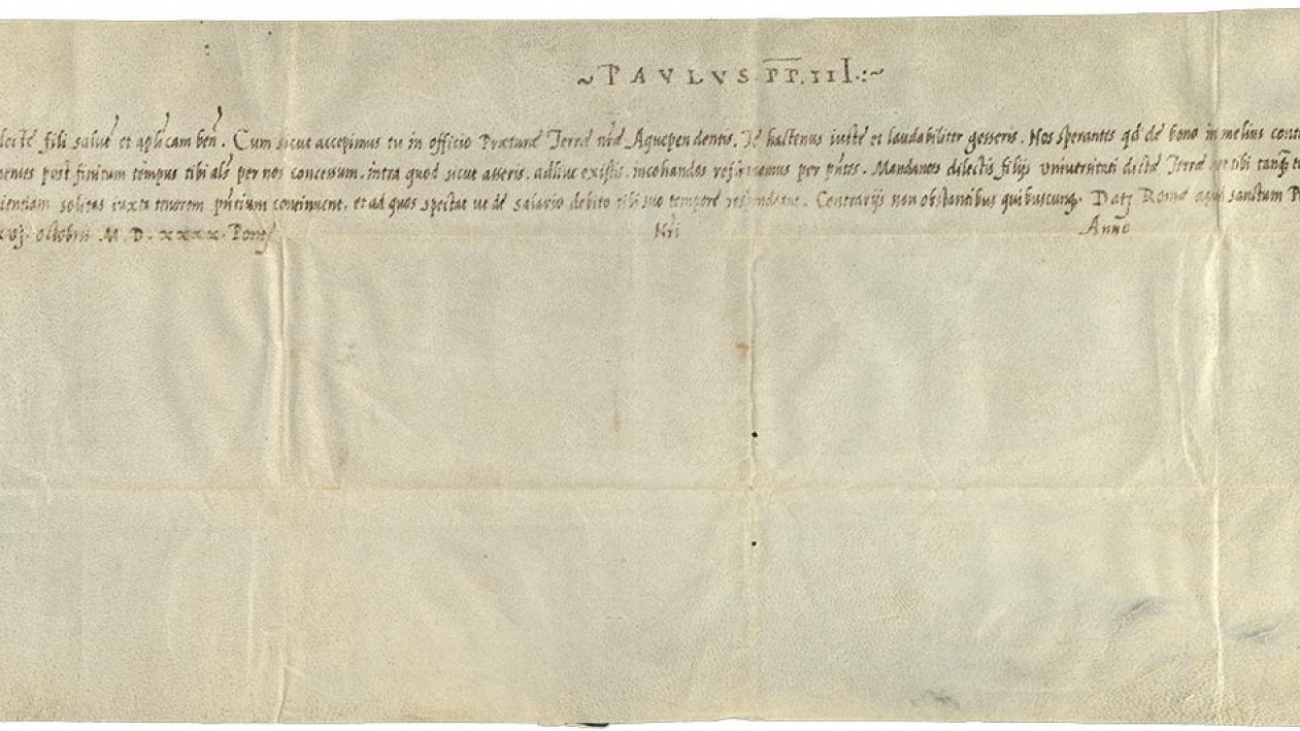 ~ P A V L V S P̅P̅. III .:~
lecte fili salute et aplicam ben. Cum sicut accepimus tu in officio Præture Terre nre Aquependentis, Te hactenus iuste et laudabiliter gesseris. Nos sperantes qd de bono in melius cont
post finitum tempus tibi als per nos concessum, intra quod sicut asseris, adhuc existis, inchoandos per pntes. Mandantes dilectis filijs universitati dicte Terre ut tibi tanq
ientiam solitas iuxta tenorem pntium convincent, et ad quos spectat ut de salario debito tibi suo tempore respondeant. Contrarijs non obstantibus quibuscunq. Datz Rome apud sanctum P
octobris M. D. xxxx. Pont Nri Anno